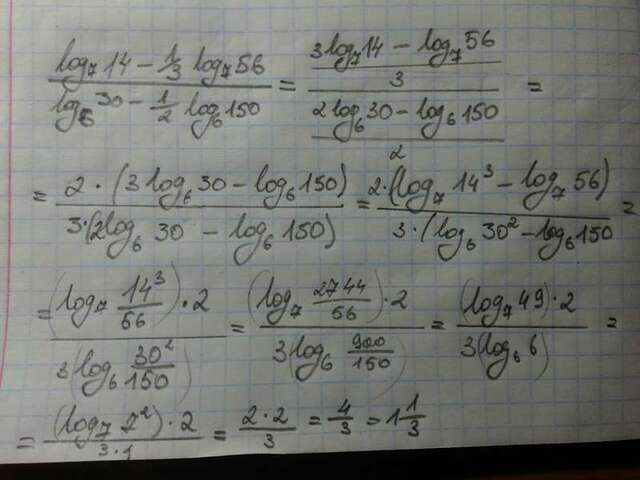 (log₇ 14 − 1/3 log₇ 56) / (log₆ 30 − 1/2 log₆ 150) = ((3 log₇ 14 − log₇ 56) / 3) / ((2 log₆ 30 − log₆ 150) / 2) =
= 2 · (3 log₆ 30 − log₆ 150) / 3 · (2 log₆ 30 − log₆ 150) = 2 · (log₇ 14³ − log₇ 56) / 3 · (log₆ 30² − log₆ 150 =
= (log₇ 14³/56) · 2 / 3 (log₆ 30²/150) = (log₇ 2744/56) · 2 / 3 (log₆ 900/150) = (log₇ 49) · 2 / 3 (log₆ 6) =
= (log₇ 7²) · 2 / 3 · 1 = 2 · 2 / 3 = 4/3 = 1 1/3